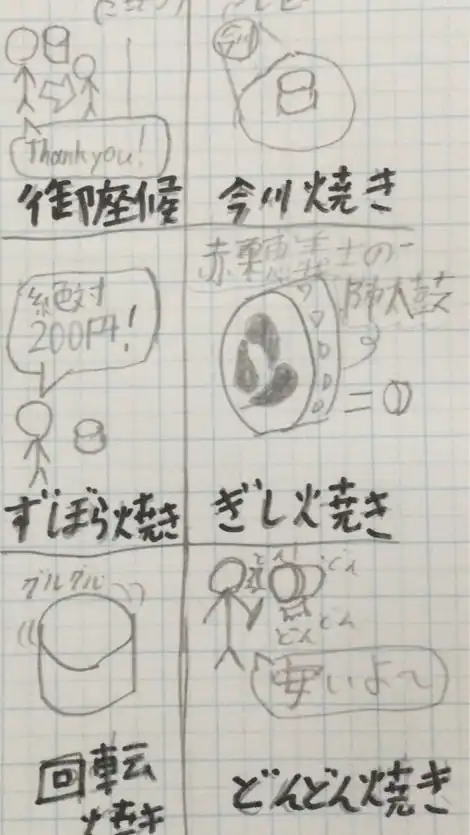 Thank you!
御座候
今川
今川焼き
絶対
200円!
ずぼら焼き
赤穂義士の
陣太鼓
=
ぎし焼き
グルグル
回転
焼き
どん
どん
どん
どん
安いよ〜
どんどん焼き